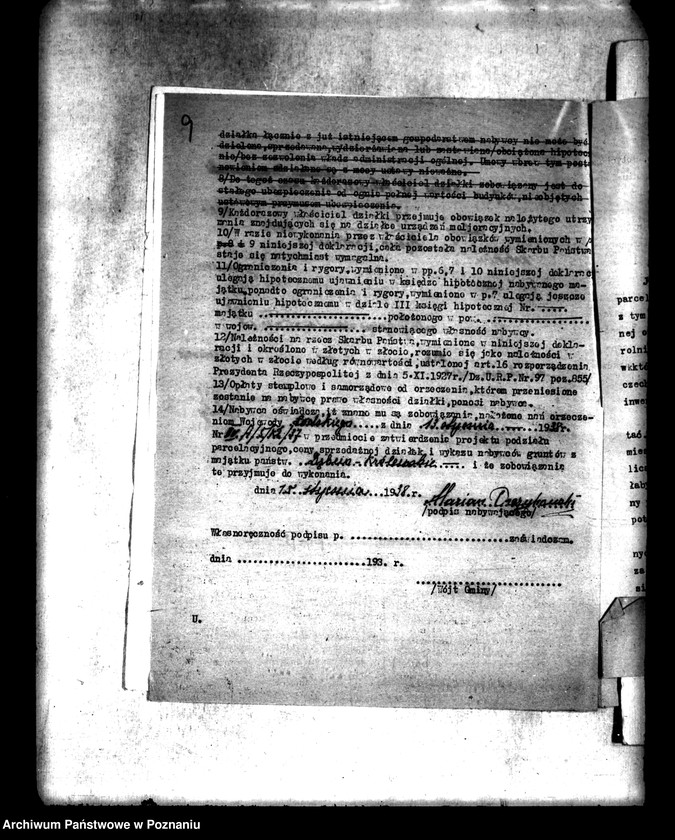 9
działka łącznie z już istniejącem gospodarstwem nabywcy nie może być
dzielona, sprzedawana, wydzierżawiana lub zastawiana/obciążana hipotecz
nie/bez zezwolenia władz administracji ogólnej. Umowy wbrew tym posta
nowieniom zdziałane są z mocy ustawy nieważne.
8/Do tegoż czasu każdorazowy właściciel działki zobowiązany jest do
stałego ubezpieczenia od ognia pełnej wartości budynków, nieobjętych
ustawowym przymusem ubezpieczenia.
9/Każdorazowy właściciel działki przejmuje obowiązek należytego utrzy
mania znajdujących się na działce urządzeń melioracyjnych.
10/W razie niewykonania przez właściciela obowiązków wymienionych w
9 niniejszej deklaracji, cała pozostała należność Skarbu Państwa
staje się natychmiast wymagalna.
11/Ograniczenia i rygory, wymienione w pp.6,7 i 10 niniejszej deklarac
ulegają hipotecznemu ujawnieniu w księdze hipotecznej nabywanego ma-
jątku, ponadto ograniczenia i rygory, wymienione w p.7 ulegają jeszcze
ujawnieniu hipotecznemu w dziale III księgi hipotecznej Nr. ......
majątku ...................... położonego w pow. ...................
w wojew. .................... stanowiącego własność nabywcy.
12/Należności na rzecz Skarbu Państwa, wymienione w niniejszej dekla-
racji i określone w złotych w złocie, rozumie się jako należności w
złotych w złocie według równowartości, ustalonej art.16 rozporządzenia
Prezydenta Rzeczypospolitej z dnia 5.XI.1927r./Dz.U.R.P.Nr.97 poz.855/
13/Opłaty stemplowe i samorządowe od orzeczenia, którem przeniesione
zostanie na nabywcę prawo własności działki, ponosi nabywca.
14/Nabywca oświadcza, iż znane mu są zobowiązania, nałożone nań orzecze-
niem Wojewody Łódzkiego ..... z dnia 13 stycznia ..... 1938r.
Nr. w przedmiocie zatwierdzenia projektu podziału
parcelacyjnego, ceny sprzedażnej działek i wykazu nabywców gruntów z
majątku państw. Dąbrowa-Królewska .... i te zobowiązania
te przyjmuje do wykonania.
dnia 15. stycznia ...1938.r.
Marian
/podpis nabywającego/
Własnoręczność podpisu p. .............................. zaświadczam.
dnia ......................193. r.
.........................
/Wójt Gminy/
U.
parcel
z tym
nej o
rolni
czech
inwe
tać
mie
lic
ny
pot
ny
za
Archiwum Państwowe w Poznaniu